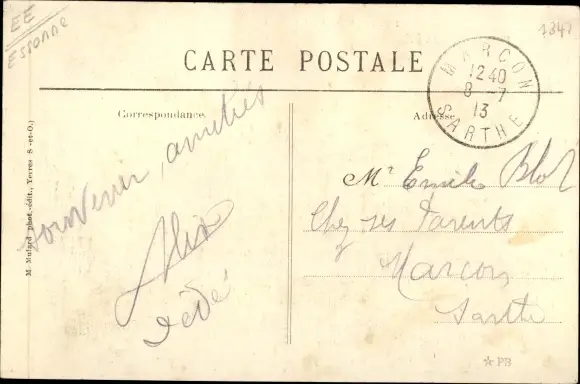 EE
Essonne
1347
CARTE POSTALE
MARCON
12 40
8 - 7
13
SARTHE
Correspondance
Adresse
M. Mulard phot.-édit., Yerres S.-et-O.)
souvenir, amitiés
Mr Emile Blot
Chez ses Parents
Marcon
Sarthe
☆ PB